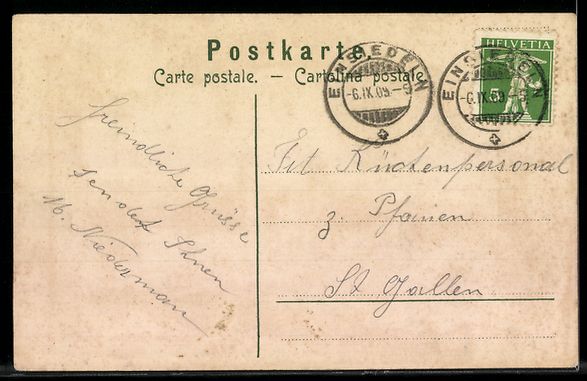 Postkarte.
Carte postale. — Cartolina postale.
EINSIEDELN
-6.IX.09.-5
EINSIEDELN
-6.IX.09.-5
HELVETIA
5
freundliche Grüsse
sendet Ihnen
M. Niederman
Tit Küchenpersonal
z. Pfauen
St Gallen